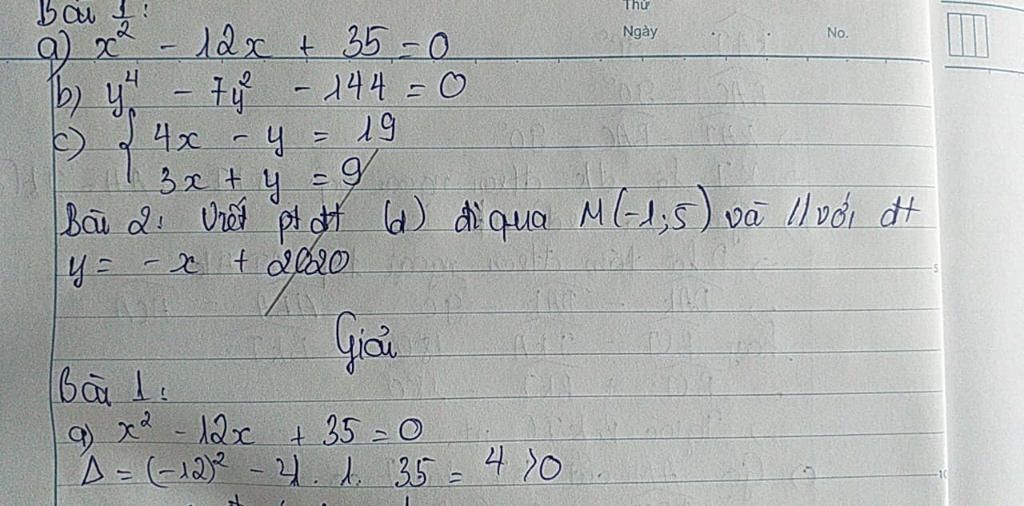 Bài 1:
Thứ
Ngày No.
a) x² - 12x + 35 = 0
b) y⁴ - 7y² - 144 = 0
c) { 4x - y = 19
3x + y = 9
Bài 2: Viết pt đt (d) đi qua M(-1;5) và // với đt
y = -x + 2020
5
Giải
Bài 1:
a) x² - 12x + 35 = 0
Δ = (-12)² - 4. 1. 35 = 4 > 0
10